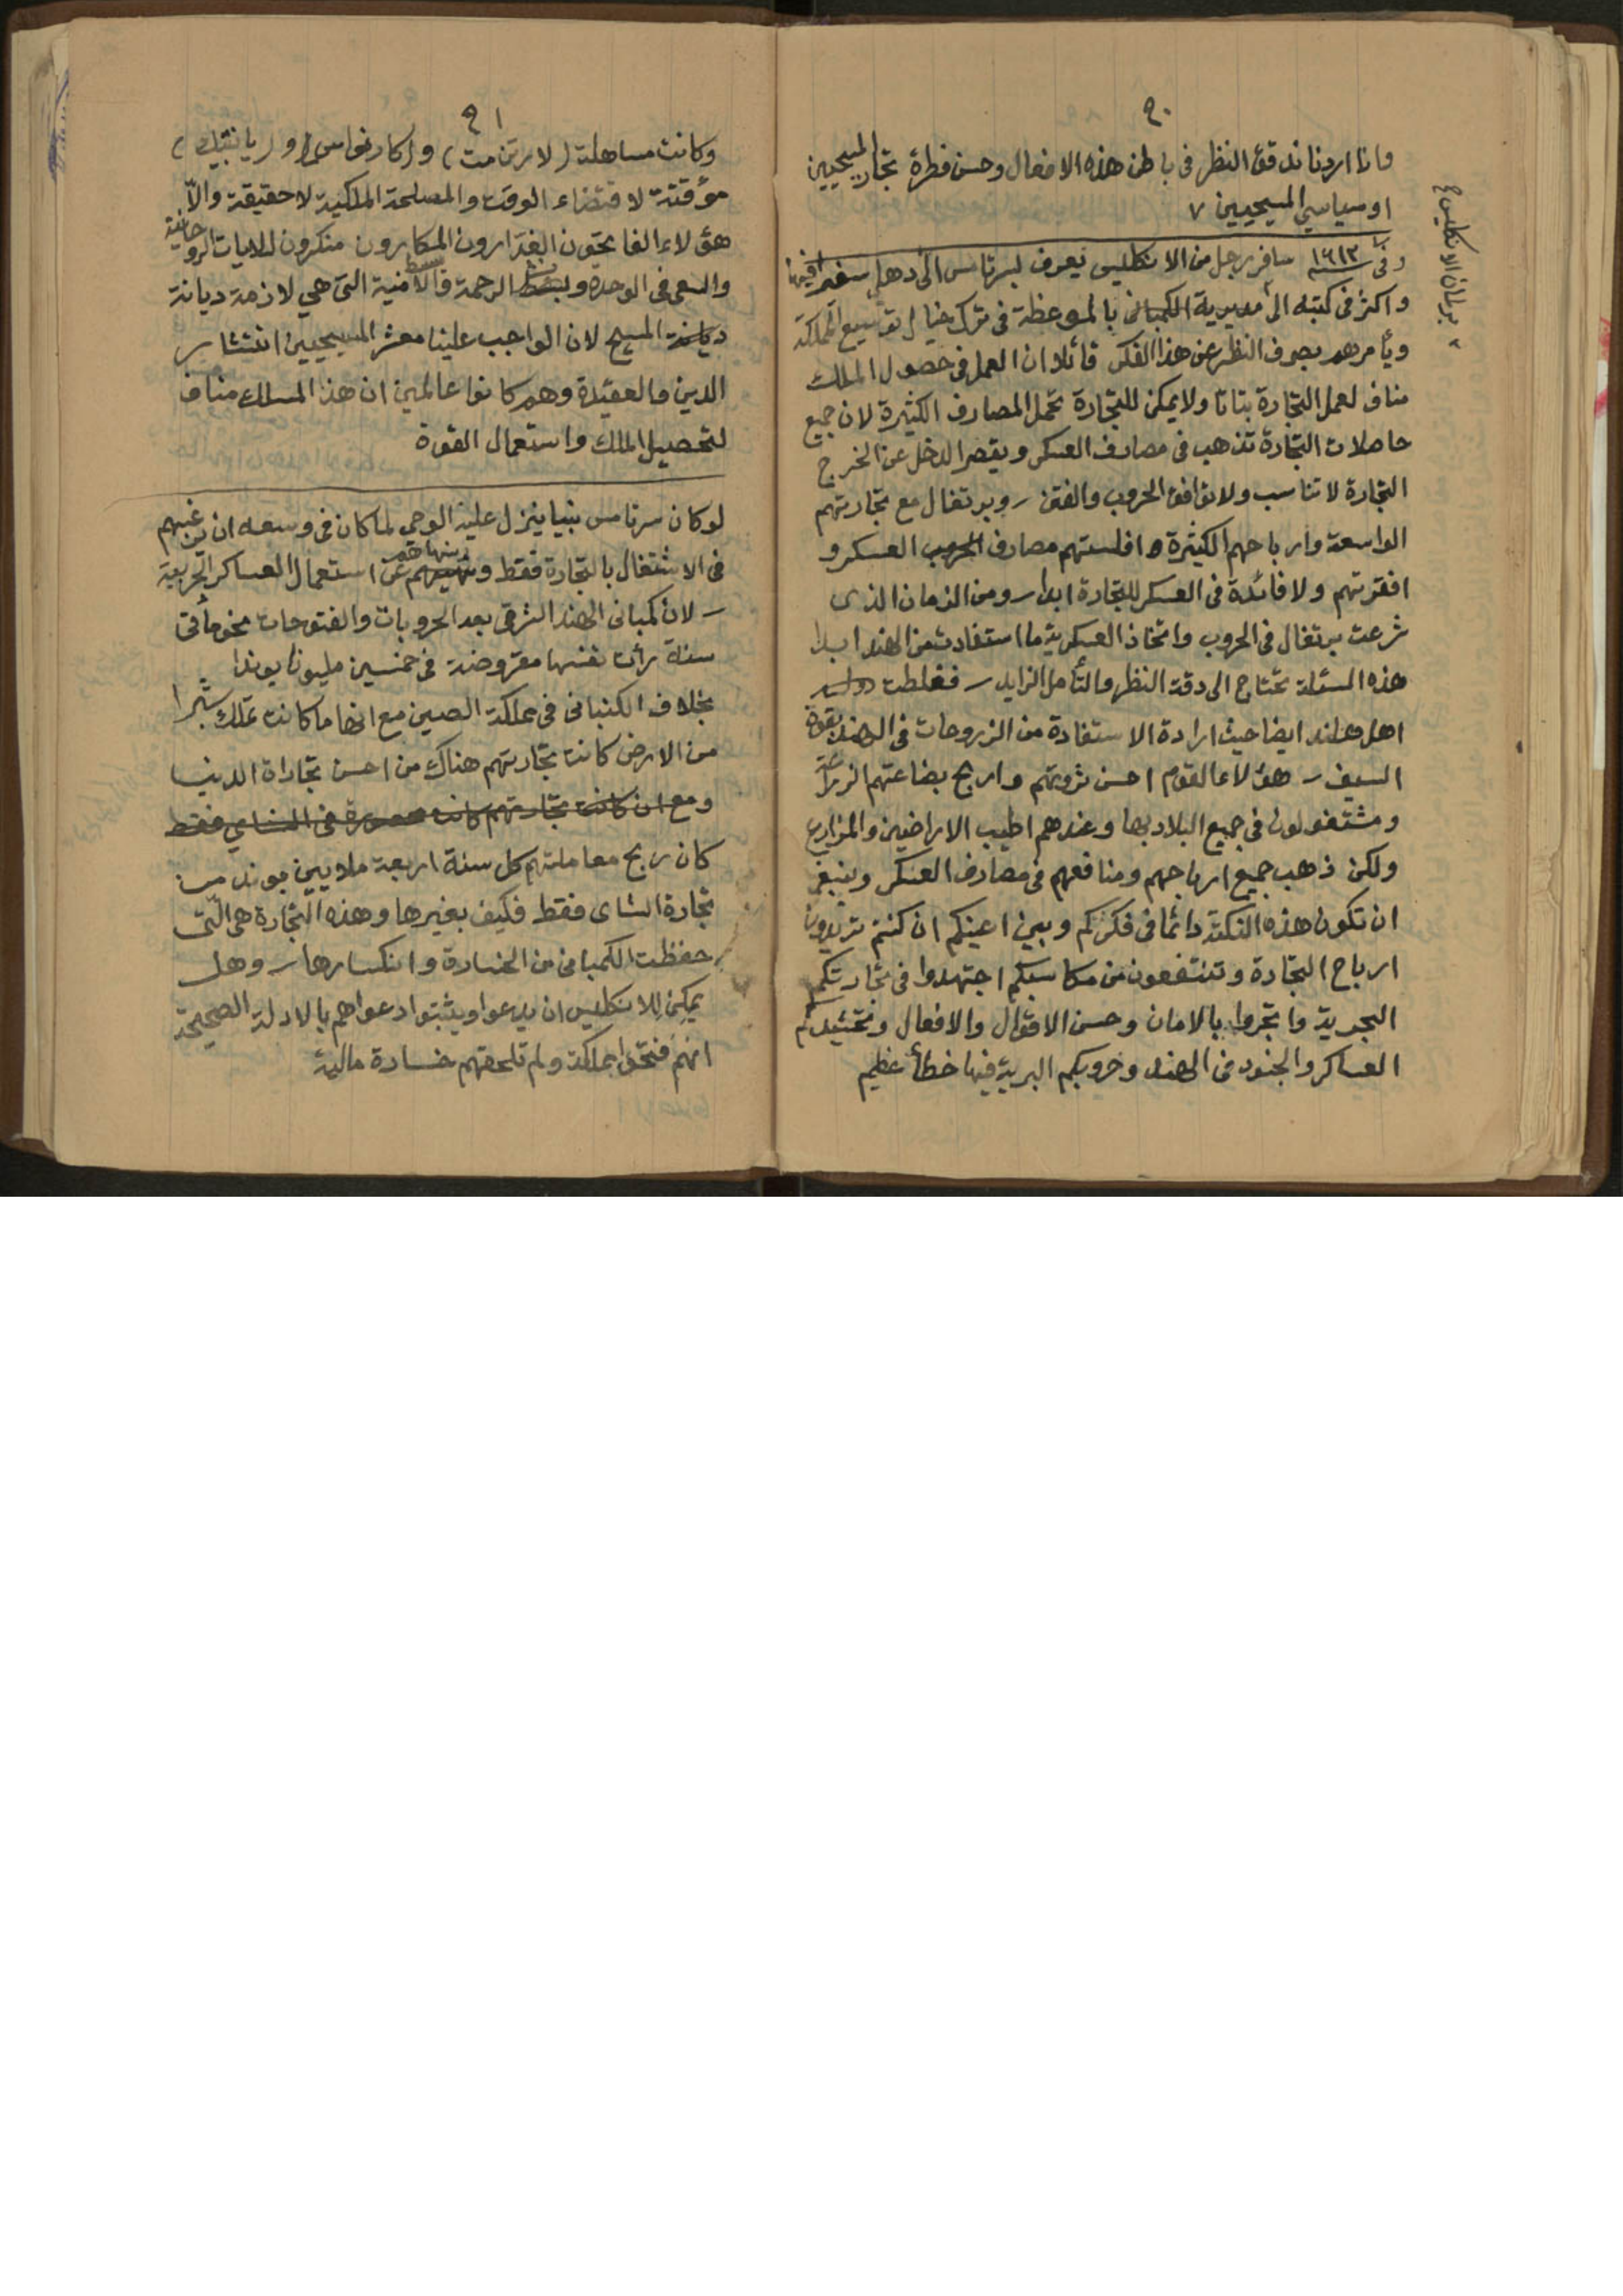 ٩٠
واذا اردنا ندقق النظر فى باطن هذه الافعال وحسن فطرة تجار المسيحيين
او سياسي المسيحيين ٧
وفى سنة ١٦١٣ سافر رجل من الانكليس يعرف لسرتامس الى دهلي سفيرا فيها
واكثر فى كتبه الى مديرية الكمبانى بالموعظة فى ترك خيال توسيع المملكة
ويأمرهم بصرف النظر عن هذا الفكر قائلا ان العمل فى حصول الملك
مناف لعمل التجارة بتاتا ولا يمكن للتجارة تحمل المصارف الكثيرة لان جميع
حاصلات التجارة تذهب فى مصارف العسكر ويقصر الدخل عن الخرج
التجارة لا تناسب ولا توافق الحروب والفتن ـ وبرتغال مع تجارتهم
الواسعة وارباحهم الكثيرة افلستهم مصارف الحروب العسكر و
افقرتهم ولا فائدة فى العسكر للتجارة ابدا ـ ومن الزمان الذى
شرعت برتغال فى الحروب واتخاذ العسكرية ما استفادت من الهند ابدا
هذه المسئلة تحتاج الى دقة النظر والتأمل الزايد ـ فغلطت دولة
اهل هلند ايضا حيث ارادة الاستفادة من الزروعات فى الهند بقوة
السيف ـ هؤلاء القوم احسن ثروتهم واربح بضاعتهم الزراعة
ومشتغولون فى جميع البلاد بها وعندهم اطيب الاراضين والمزارع
ولكن ذهب جميع ارباحهم ومنافعهم فى مصارف العسكر وينبغى
ان تكون هذه النكتة دائما فى فكركم وبين اعينكم ان كنتم تريدون
ارباح التجارة وتنتفعون من مكاسبكم اجتهدوا فى تجارتكم
البحرية واتجروا بالامان وحسن الاقوال والافعال وتحشيدكم
العساكر والجنود فى الهند وحروبكم البرية فيها خطأ عظيم
٩١
وكانت مساهلة (لارتن مت) و(كارنواس) و(يا نتيك)
مؤقتة لاقتضاء الوقت والمصلحة الملكية لا حقيقة والاّ
هؤلاء الفاتحون الغدارون المكارون منكرون للايات الروحانية
والسعى فى الوحدة وبسط الرحمة والامنية التى هي لازمة ديانة
ديانة المسيح لان الواجب علينا معشر المسيحيين انتشار
الدين والعقيدة وهم كانوا عالمين ان هذا المسلك مناف
لتحصيل الملك واستعمال القوة
لو كان سرتامس نبيا ينزل عليه الوحي لما كان فى وسعه ان يرغبهم
فى الاشتغال بالتجارة فقط وينهاهم عن استعمال العساكر الحربية
ـ لان كمبانى الهند الشرقى بعد الحروبات والفتوحات نحو مأتى
سنة رأت نفسها مقروضة فى خمسين مليونا پوندا
بخلاف الكنبانى فى مملكة الصين مع انها ما كانت تملك شبرا
من الارض كانت تجارتهم هناك من احسن تجاراة الدنيا
ومع ان كانت تجارتهم كانت محصورة فى الشاي فقط
كان ربح معاملتهم كل سنة اربعة ملايين پوند من
تجارة الشاى فقط فكيف بغيرها وهذه التجارة هى الّتى
حفظت الكمبانى من الخسارة وانكسارها ـ وهل
يمكن للانكليس ان يدعوا ويثبتوا دعواهم بالادلة الصحيحة
انهم فتحوا مملكة ولم تلحقهم خسارة مالية